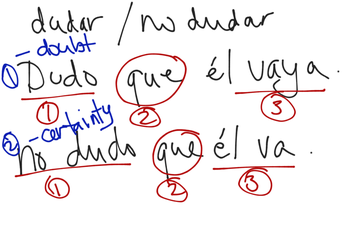 dudar / no dudar
- doubt
① Dudo que él vaya.
① ② ③
② - certainty
no dudo que él va.
① ② ③